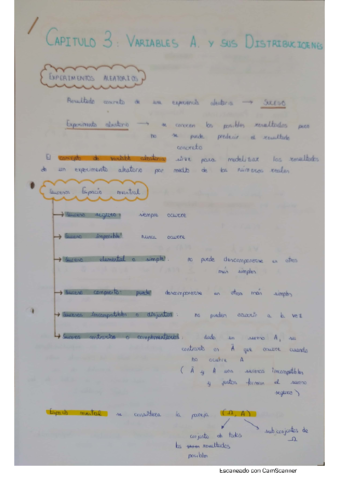 CAPITULO 3: VARIABLES A. y SUS DISTRIBUCIONES
EXPERIMENTOS ALEATORIOS
Resultado concreto de un experimento aleatorio → SUCESO
Experimento aleatorio → se conocen los posibles resultados pero
no se puede predecir el resultado
concreto
El concepto de variable aleatoria sirve para modelizar los resultados
de un experimento aleatorio por medio de los números reales
Sucesos Espacio muestral
Suceso seguro: siempre ocurre
Suceso imposible: nunca ocurre
Suceso elemental o simple: no puede descomponerse en otros
más simples
Suceso compuesto: puede descomponerse en otros más simples
Sucesos incompatibles o disjuntos: no pueden ocurrir a la vez
Suceso contrario o complementario: dado un suceso A, su
contrario es Ā que ocurre cuando
no ocurre A
(A y Ā son sucesos incompatibles
y juntos forman el suceso
seguro)
Espacio muestral la pareja (Ω, A)
conjunto de todos
los resultados
posibles
subconjuntos de
Ω
Escaneado con CamScanner